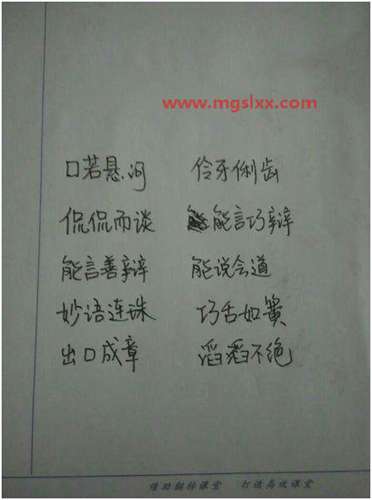 www.mgslxx.com
口若悬河 伶牙俐齿
侃侃而谈 能言巧辩
能言善辩 能说会道
妙语连珠 巧舌如簧
出口成章 滔滔不绝
借助翻转课堂 打造高效课堂